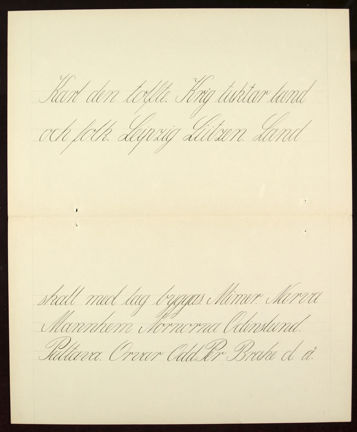 Karl den tolfte. Krig tuktar land
och folk. Leipzig Lützen. Land
skall med lag byggas Mimer. Narva
Mannhem Nornorna Odenslund.
Pultava. Orvar Odd. Per Brahe d. ä.